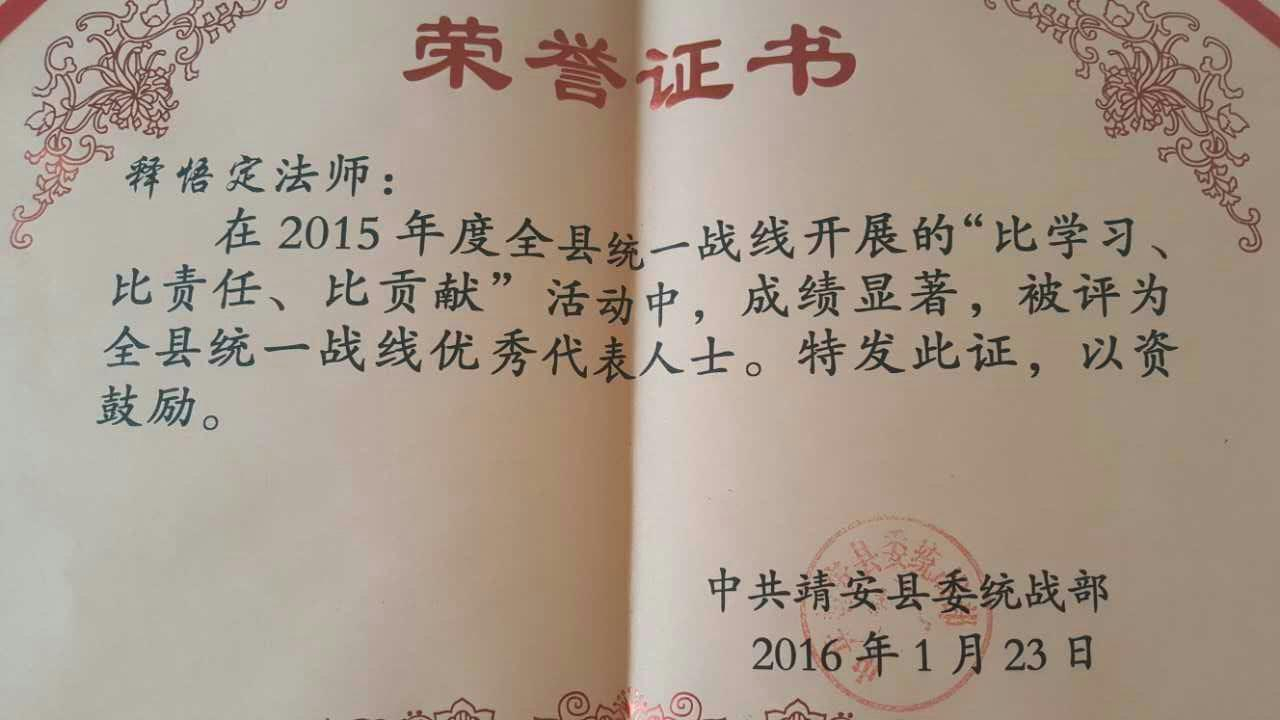 荣誉证书
释悟定法师：
在2015年度全县统一战线开展的“比学习、
比责任、比贡献”活动中，成绩显著，被评为
全县统一战线优秀代表人士。特发此证，以资
鼓励。
中共靖安县委统战部
2016年1月23日